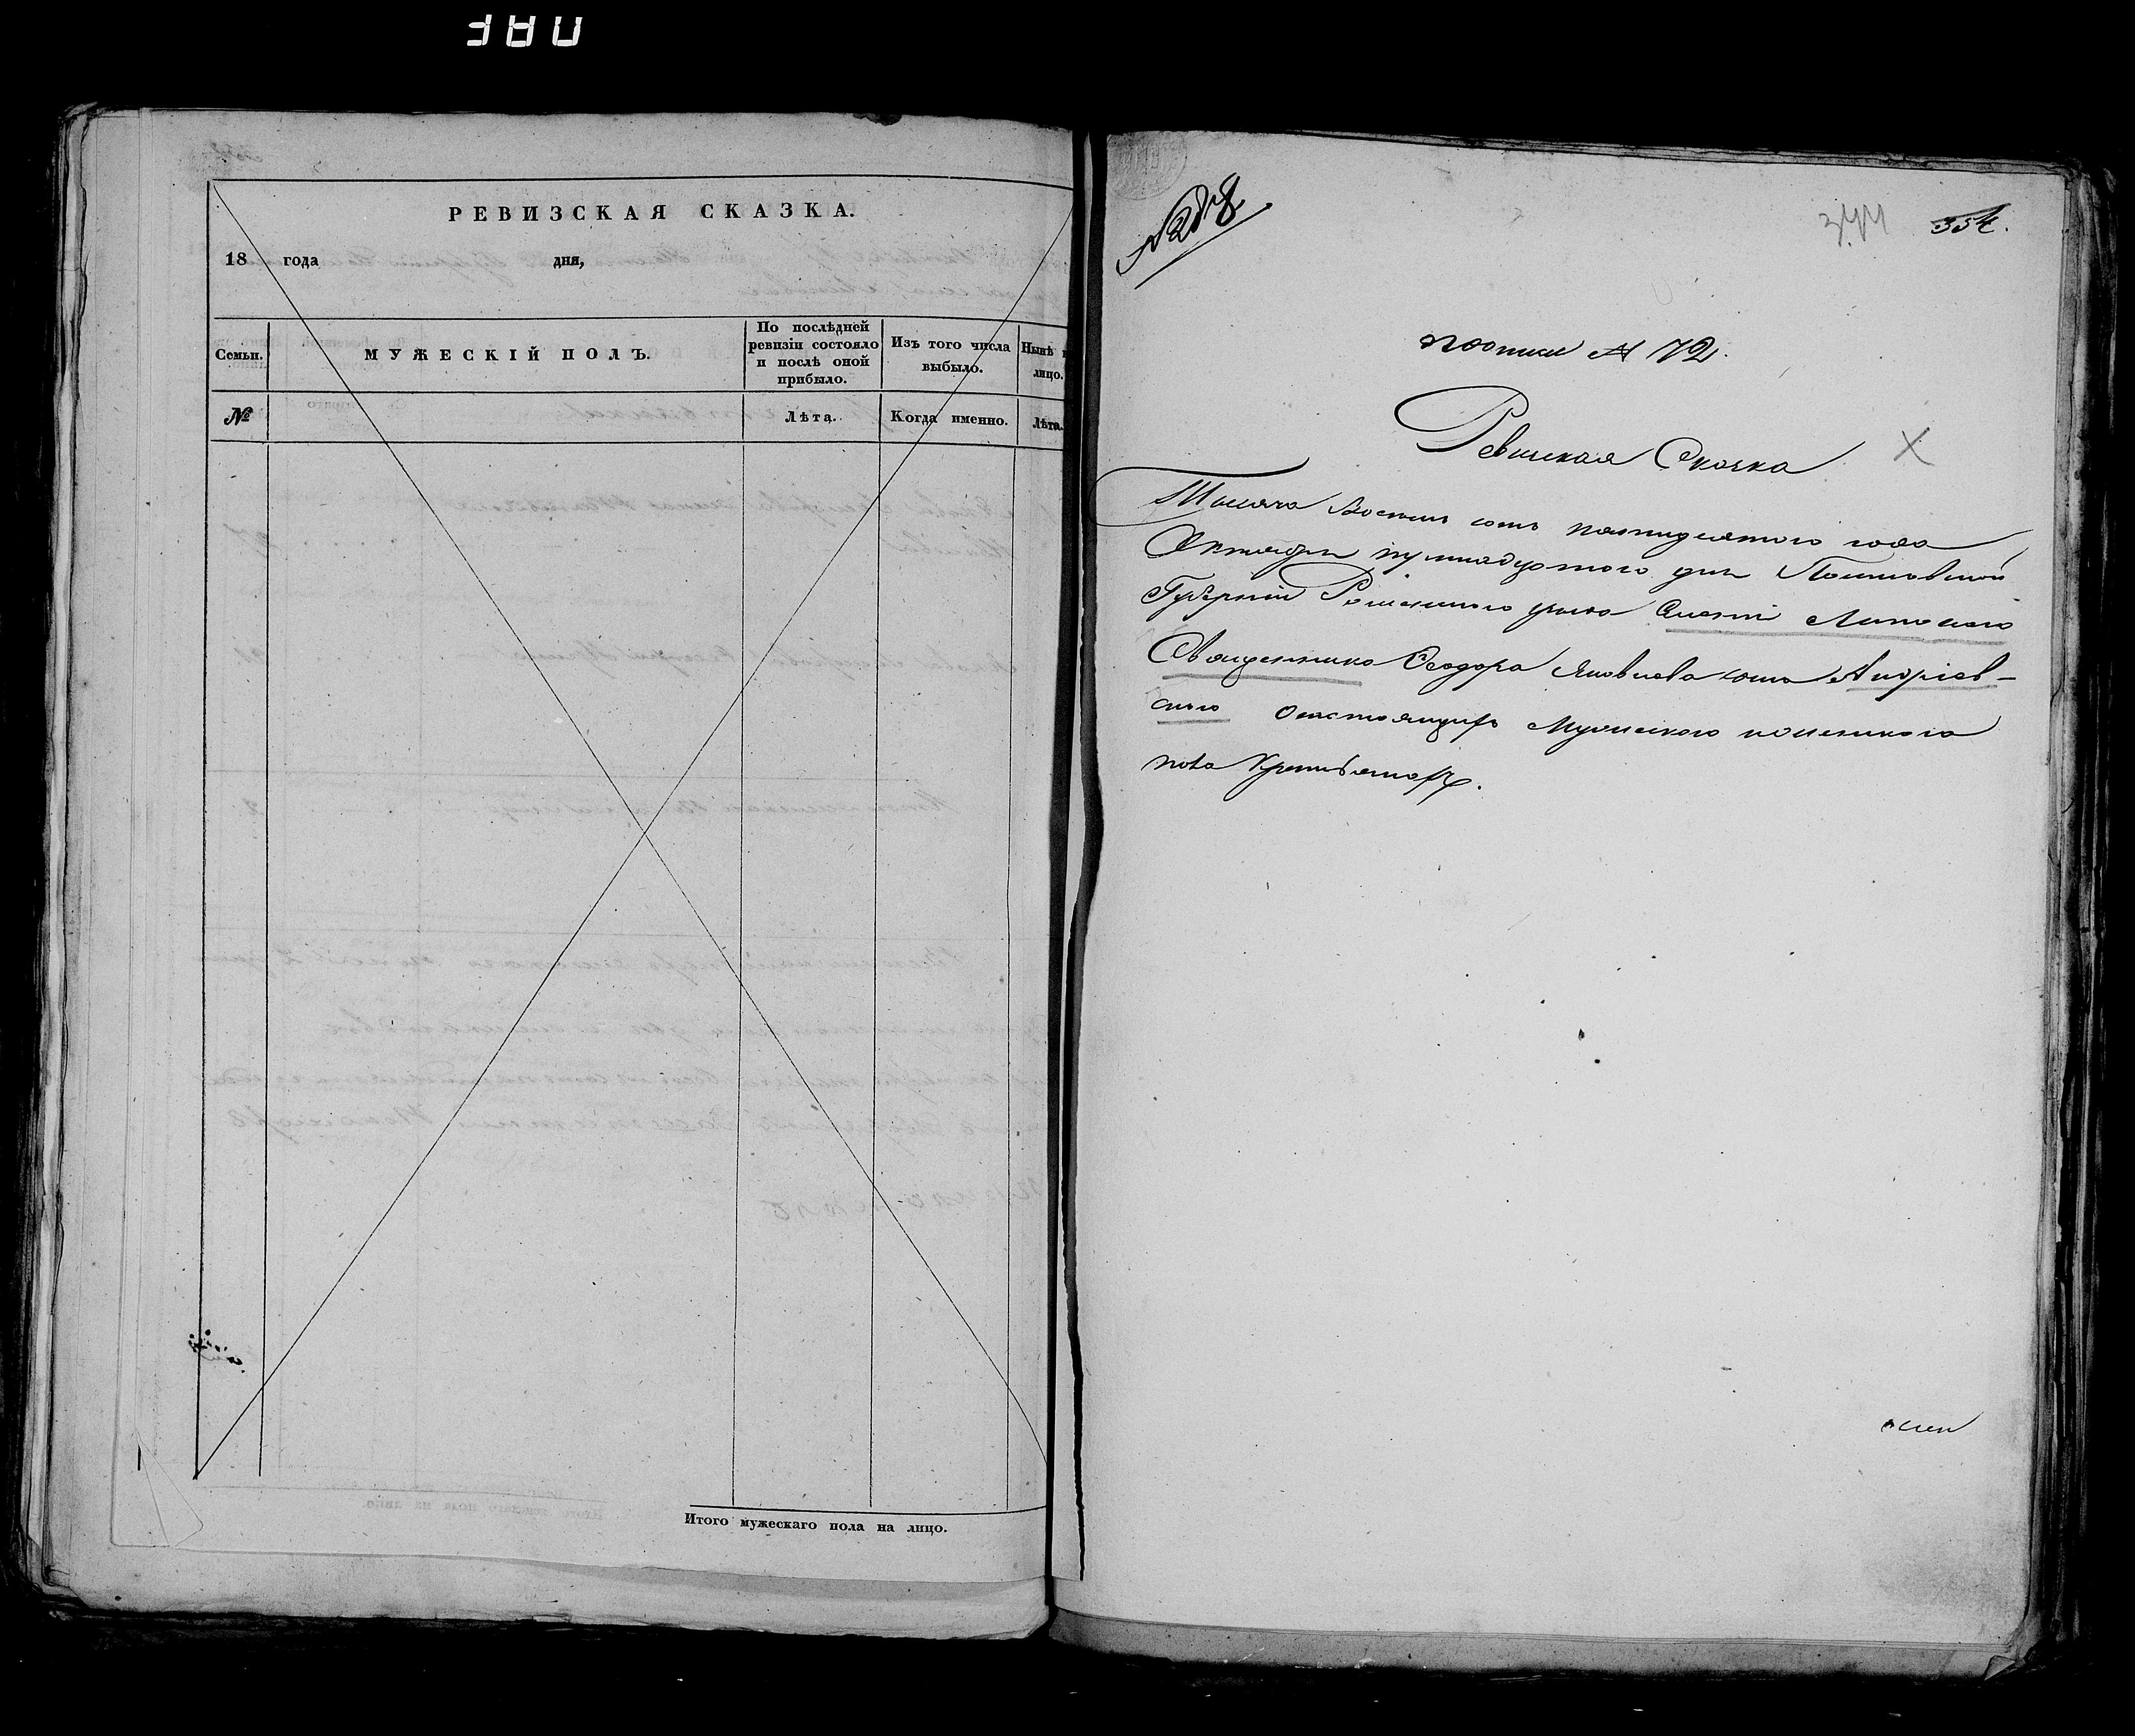 РЕВИЗСКАЯ СКАЗКА.
18 года дня,
Семьи.
МУЖЕСКІЙ ПОЛЪ.
По послѣдней ревизіи состояло и послѣ оной прибыло.
Изъ того числа выбыло.
Нынѣ
лицо.
№
Лѣта.
Когда именно.
Лѣта.
Итого мужескаго пола на лицо.
354.
344
72.
Ревиская Сказка
Тысяча Восемь сотъ пятидесятого года
Октября пятнадцятого дня Полтавской
Губерніи Роменского уезда
Священника Феодора Яковлева сына Андріев-
ского о состоящихъ Мужеского
пола Крестьянахъ.